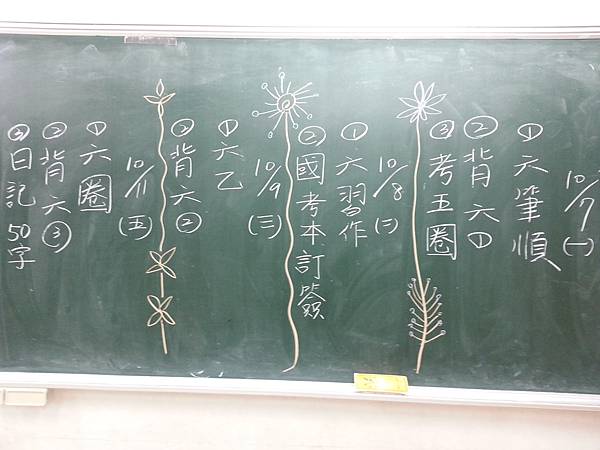 10/7(一)
①六筆順
②背六①
③考五圈
10/8(二)
①六習作
②國考本訂簽
10/9(三)
①六乙
②背六②
10/11(五)
①六圈
②背六③
③日記50字